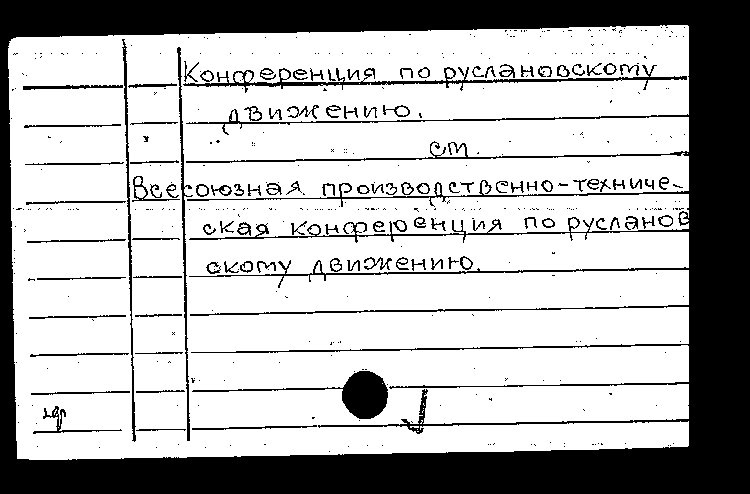 Конференция по руслановскому
движению.
см.
Всесоюзная производственно-техниче-
ская конференция по руслановскому
скому движению.